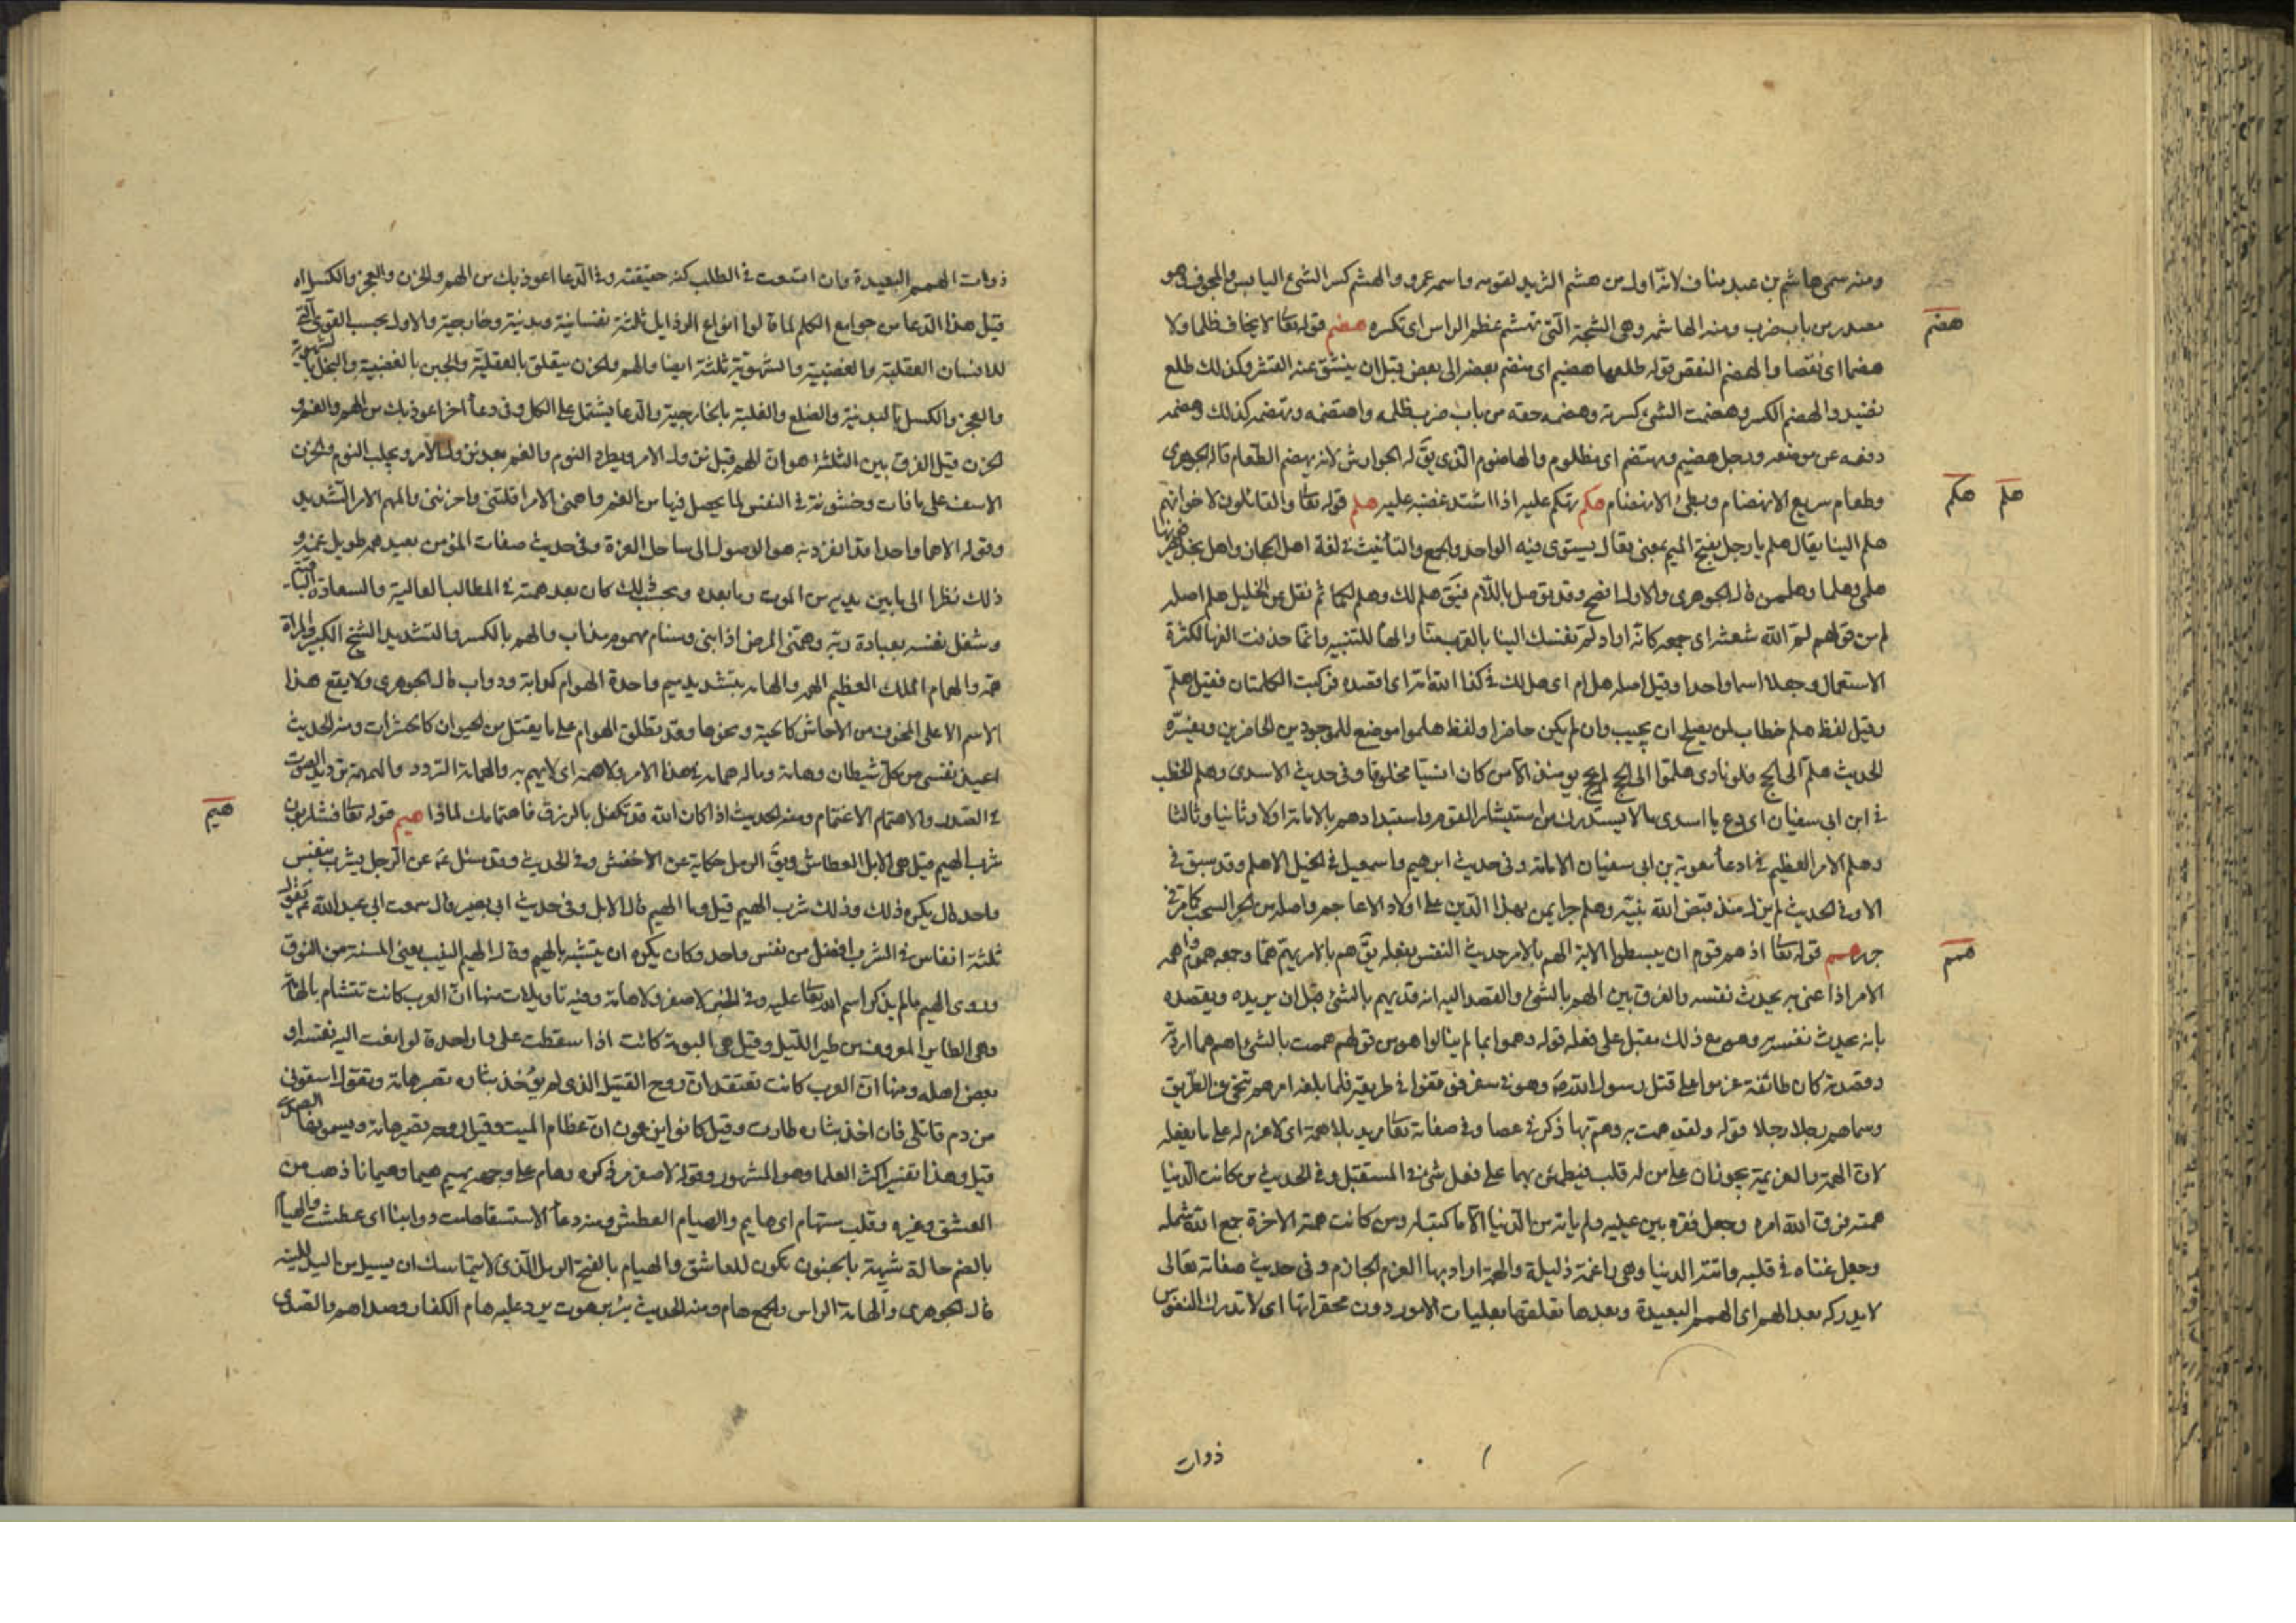 ومنه سمى هاشم بن عبد مناف لانّه اول من هشم الثريد لقومه واسمه عمرو والهشم كسر الشئ اليابس والمجوف وهو
هضم
مصدر من باب ضرب ومنه الهاشمه وهى الشجة الّتى تهشم عظم الراس اى تكسره هضم قوله تعا لا يخاف ظلما ولا
هضما اى نقصا والهضم النقص قوله طلعها هضيم اى منضم بعضه الى بعض قبل ان ينشق عنه القشر وكذلك طلع
نضيد والهضم الكسر وهضمت الشئ كسرته وهضمه حقه من باب ضرب ظلمه واهتضمه وتهضمه كذلك وهضمه
دفعه عن موضعه ورجل هضيم ومهتضم اى مظلوم والهاضوم الّذى يقّ له الجوارش لانه يهضم الطّعام قاله الجوهرى
هكم هلم
وطعام سريع الانهضام وبطئ الانهضام هكم تهكم عليه اذا اشتد غضبه عليه هلم قوله تعا والقائلون لاخوانهم
هلم الينا يقال هلم يا رجل بفتح الميم بمعنى تعال يستوى فيه الواحد والجمع والتأنيث فى لغة اهل الحجاز واهل نجد يصرفونها
هلمى وهلما وهلممن قال الجوهرى والاول افصح وقد يوصل باللّام فيقّ هلم لك وهلم لكما ثم نقل عن الخليل هلم اصله
لم من قولهم لمّ الله شعثه اى جمعه كانّه اراد لمّ نفسك الينا بالقرب منّا والها للتنبيه وانما حذفت الفها لكثرة
الاستعمال وجعلا اسما واحدا وقيل اصله هل ام اى هل لك فى كذا امّه اى اقصده فركبت الكلمتان فقيل هلمّ
وقيل لفظ هلم خطاب لمن يصلح ان يجيب وان لم يكن حاضرا ولفظ هلموا موضع للموجودين الحاضرين ويفسّره
الحديث هلم الى الحج فلو نادى هلمّوا الى الحج لم يحج يومئذ الّا من كان انسيّا مخلوقا وفى حديث الاسدى وهلم الخطب
فى ابن ابى سفيان اى دع يا اسدى مالا يستدرك من استيثار القوم واستبدادهم بالامامة اولا وثانيا وثالثا
وهلم الامر العظيم فى ادعاء معوية بن ابى سفيان الامامة وفى حديث ابرهيم واسمعيل فى الخيل الاهلم وقد سبق فى
الا وفى الحديث لم يزل منذ قبض الله نبيّه وهلم جرا يمن بهذا الّدين على اولاد الاعاجم واصله من الجر السحب كما مرّ فى
همم
جرر همم قوله تعا اذ هم قوم ان يبسطوا الاية الهم بالامر حديث النفس بفعله يقّ هم بالامر يهمّ همّا وجمعه هموم واهمه
الامر اذا عنى به يحدث نفسه والفرق بين الهم بالشئ والقصد اليه انه قد يهم بالشئ قبل ان يريده ويقصده
بانه يحدث نفسه به وهو مع ذلك مقبل على فعله قوله وهموا بما لم ينالوا هو من قولهم هممت بالشئ اهم هما اردته
وقصدته كان طائفة عزموا على قتل رسول الله صّ وهو فى سفر فوقفوا فى طريقه فلما بلغه امرهم تنحى عن الطّريق
وسماهم رجلا رجلا قوله ولقد همت به وهم بها ذكر فى عصا وفى صفاته تعا مريد بلا همة اى لا عزم له على ما يفعله
لان الهمة والعزيمة يجوزان على من له قلب فيطمئن بهما على فعل شئ فى المستقبل وفى الحديث من كانت الّدنيا
همته فرق الله امره وجعل فقره بين عينيه ولم ياته من الّدنيا الّا ما كتب له ومن كانت همته الاخرة جمع الله شمله
وجعل غناه فى قلبه واتته الدنيا وهى راغمة ذليلة والهمة اراد بها العزم الجازم وفى حديث صفاته تعالى
لا يدركه بعد الهمم اى الهمم البعيدة وبعدها تعلقها بعليات الامور دون محقراتها اى لا تدرك النفوس
ذوات
ذوات الهمم البعيدة وان اتسعت فى الطلب كنه حقيقته وفى الّدعا اعوذ بك من الهم والحزن والعجز والكسل اه
قيل هذا الدّعا من جوامع الكلم لما قالوا انواع الرذايل ثلثة نفسانية وبدنية وخارجية والاول بحسب القوى الّتى
للانسان العقلية والغضبية والشهويّة ثلثة ايضا والهم والحزن يتعلق بالعقلية والجبن بالغضبية والبخل بالشهوية
والعجز والكسل بالبدنية والضلع والغلبة بالخارجية والّدعا يشتمل على الكل وفى دعأ اخر اعوذ بك من الهم والغم و
الحزن قيل الفرق بين الثلثة هو ان الهم قبل نزول الامر ويطرد النوم والغم بعد نزول الامر ويجلب النوم والحزن
الاسف على ما فات وخشونة فى النفس لما يحصل فيها من الغم واهمنى الامر اقلقنى واحزننى والمهم الامر الشّديد
وقوله الا هما واحدا قد انفرد به هو الوصول الى ساحل العزة وفى حديث صفات المؤمن بعيد همه طويل غمه و
ذلك نظرا الى ما بين يديه من الموت وما بعده وبحسب ذلك كان بعد همته فى المطالب العالية والسعادة الباقية
وشغل نفسه بعبادة ربّه وهمّنى المرض اذابنى وسنام مهموم مذاب والهم بالكسر والتشديد الشيخ الكبير والمراة
همّة والهمام الملك العظيم الهمة والهامة بتشديد ميم واحدة الهوام كدابة ودواب قال الجوهرى ولا يقع هذا
الاسم الا على المخوف من الاحناش كالحية ونحوها وقد تطلق الهوام على ما يقتل من الحيوان كالحشرات ومنه الحديث
اعيذ نفسى من كل شيطان وهامة وماله همامة فى هذا الامر ولا همة اى لا يهم به والهمامة التردد والهمهمة ترديد الصوت
هيم
فى الصّدر والاهتمام الاغتمام ومنه الحديث اذا كان الله قد تكفل بالرزق فاهتمامك لماذا هيم قوله تعا فشاربون
شرب الهيم قيل هى الابل العطاش ويقّ الرمل حكاية عن الاخفش وفى الحديث وقد سئل عّ عن الّرجل يشرب بنفس
واحد قال يكره ذلك وذلك شرب الهيم قيل وما الهيم قال الابل وفى حديث ابى بصير قال سمعت ابى عبد الله عّ يقول
ثلثة انفاس فى الشرب افضل من نفس واحد وكان يكره ان يتشبه بالهيم وقال الهيم النيب يعنى المسنة من النوق
وروى الهيم مالم يذكر اسم الله تعا عليه وفى الخبر لا صفر ولا هامة وفيه تاويلات منها انّ العرب كانت تتشام بالهامة
وهى الطاير المعروف من طير الليل وقيل هى البومة كانت اذا سقطت على دار احدهم قالوا نعت اليه نفسه او
بعض اهله ومنها انّ العرب كانت تعتقد ان روح القتيل الذى لم يؤخذ بثاره تصير هامة وتقول اسقونى
من دم قاتلى فان اخذ بثاره طارت وقيل كانوا يزعمون ان عظام الميت وقيل روحه تصير هامة ويسمونها الصدى
قيل وهذا تفسير اكثر العلما وهو المشهور وقوله لا صفر مر ذكره وهام على وجهه يهيم هيما وهيمانا ذهب من
العشق وغيره وقلب مستهام اى هايم والهيام العطش ومنه دعأ الاستسقا هامت دوابنا اى عطشت والهيام
بالضم حالة شبيهة بالجنون تكون للعاشق والهيام بالفتح الرمل الّذى لا يتماسك ان يسيل من اليد للينه
قال الجوهرى والهامة الراس والجمع هام ومنه الحديث بئر برهوت يرد عليه هام الكفار وصداهم والصّدى